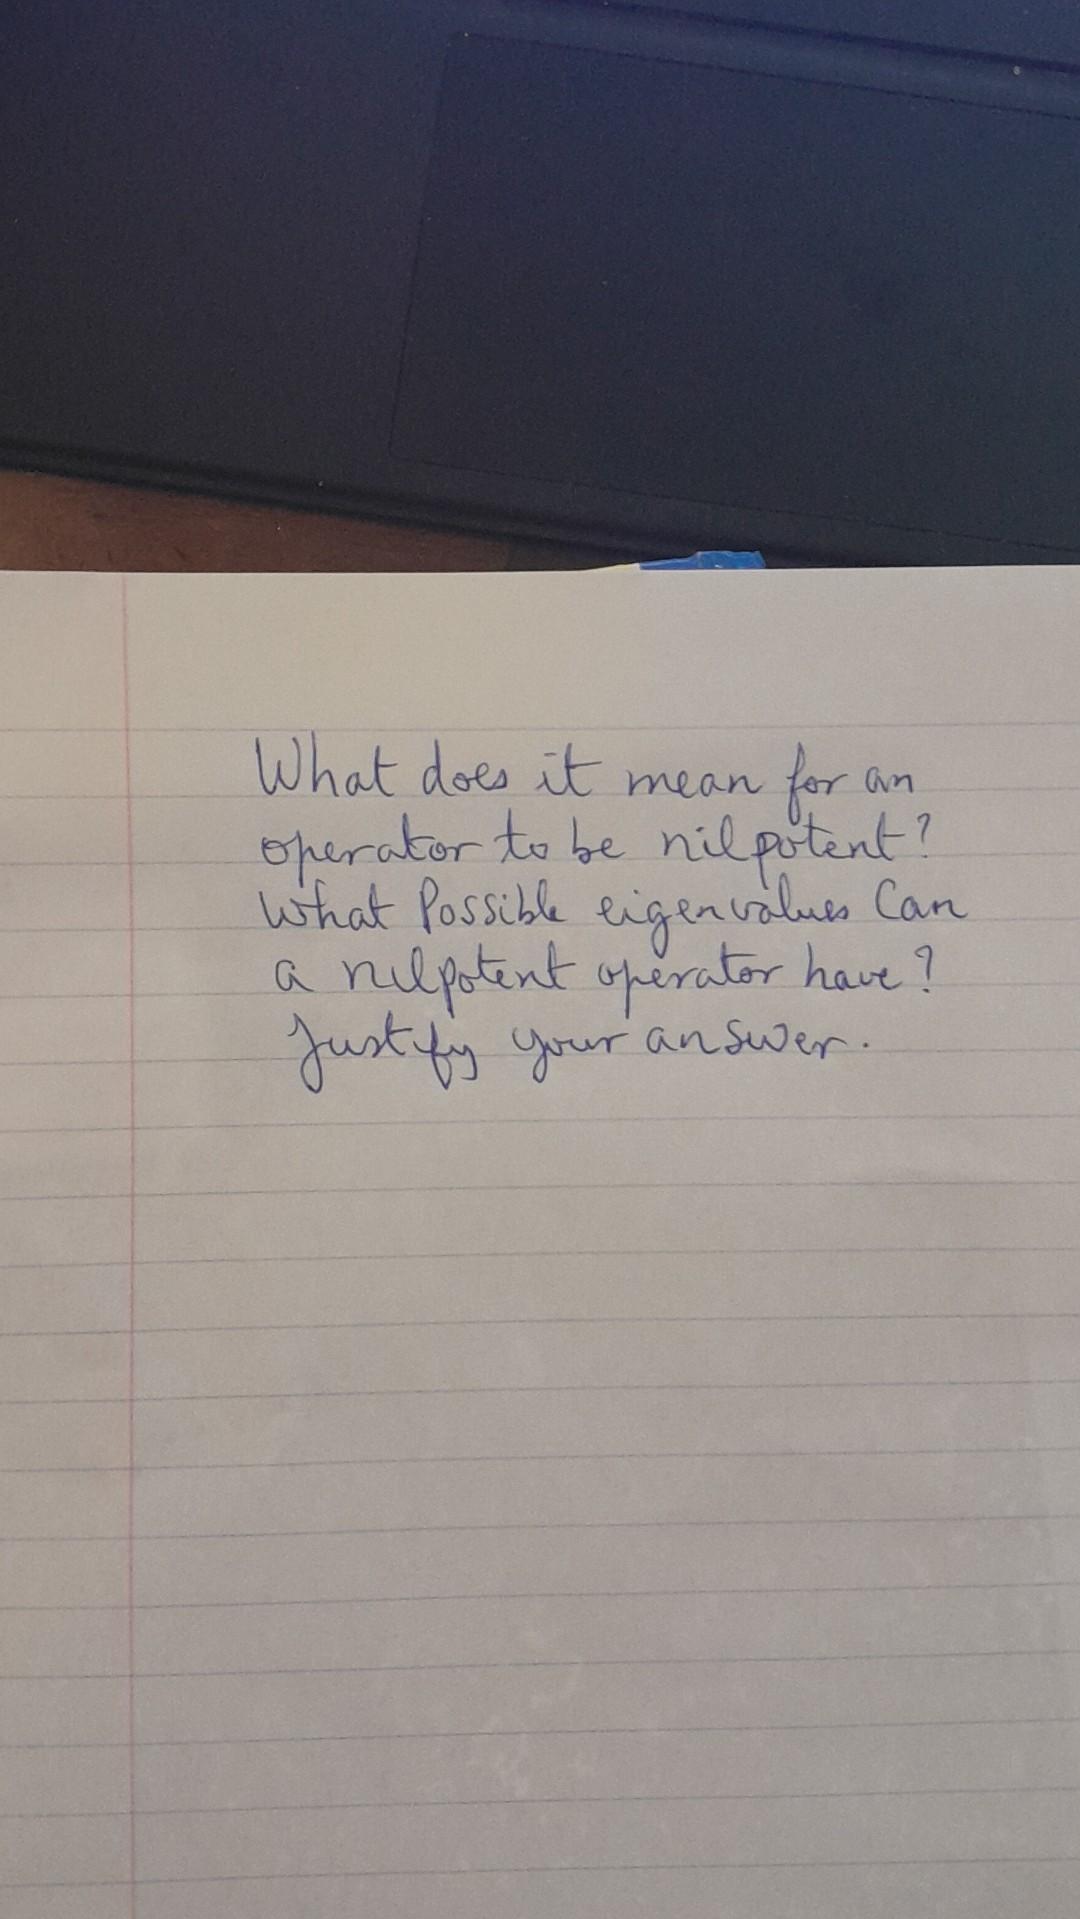 What does it mean for an
operator to be nilpotent?
What Possible eigenvalues Can
a nilpotent operator have?
Justify your answer.